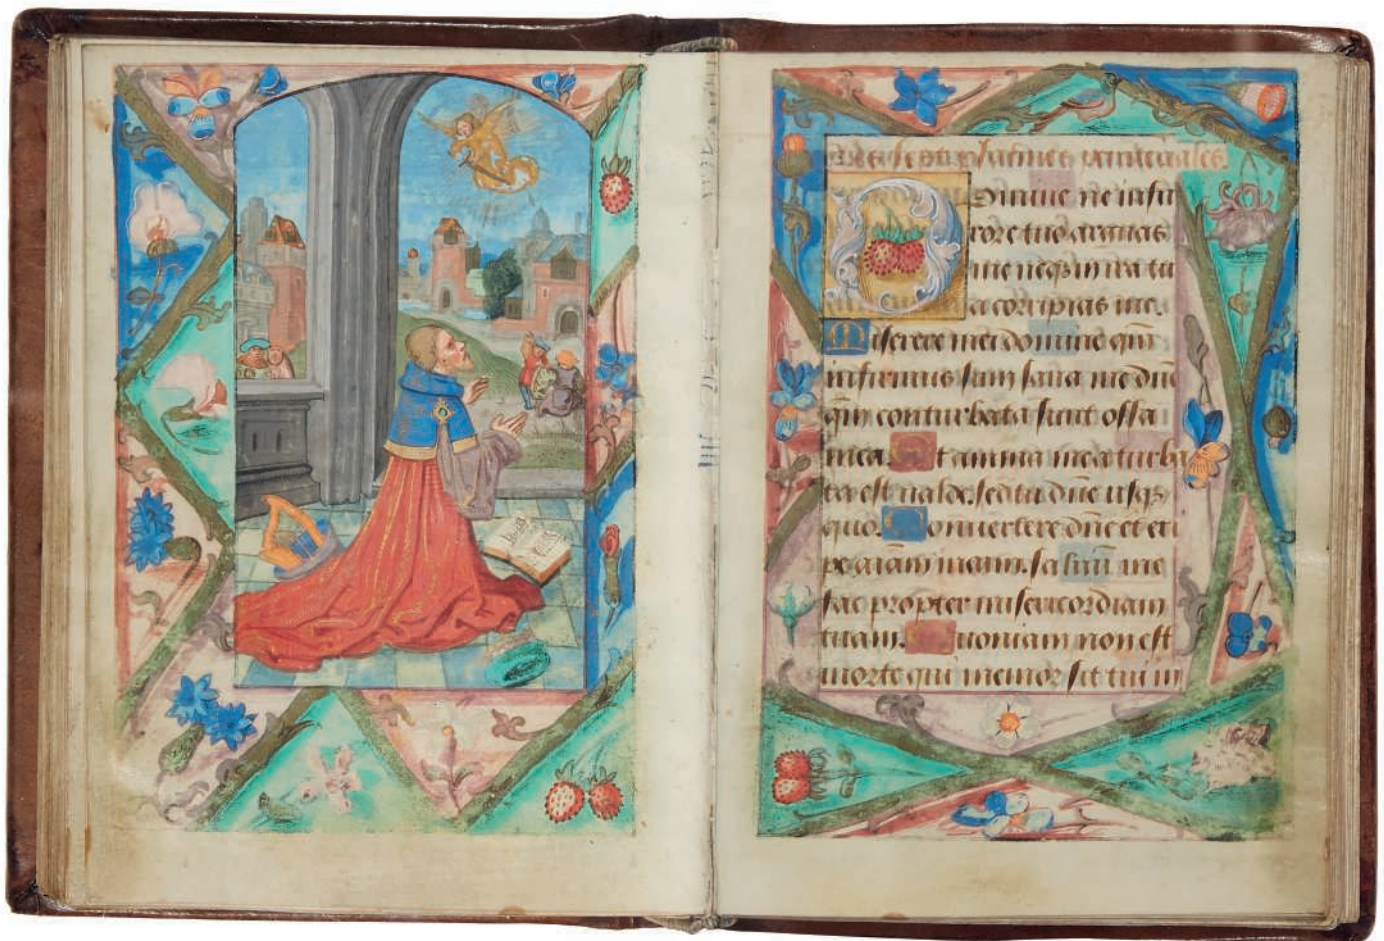 Domine ne in fu
rore tuo arguas
me neqz in ira tu
a corripias me.
Miserere mei domine qm̄
infirmus sum sana me dn̄e
qm̄ conturbata sunt ossa
mea. Et anima mea turba
ta est valde. sed tu dn̄e usqz
quo. Convertere dn̄e et eri
pe aīam meam. saluū me
fac propter misericordiam
tuam. Quoniam non est
morte qui memor sit tui in